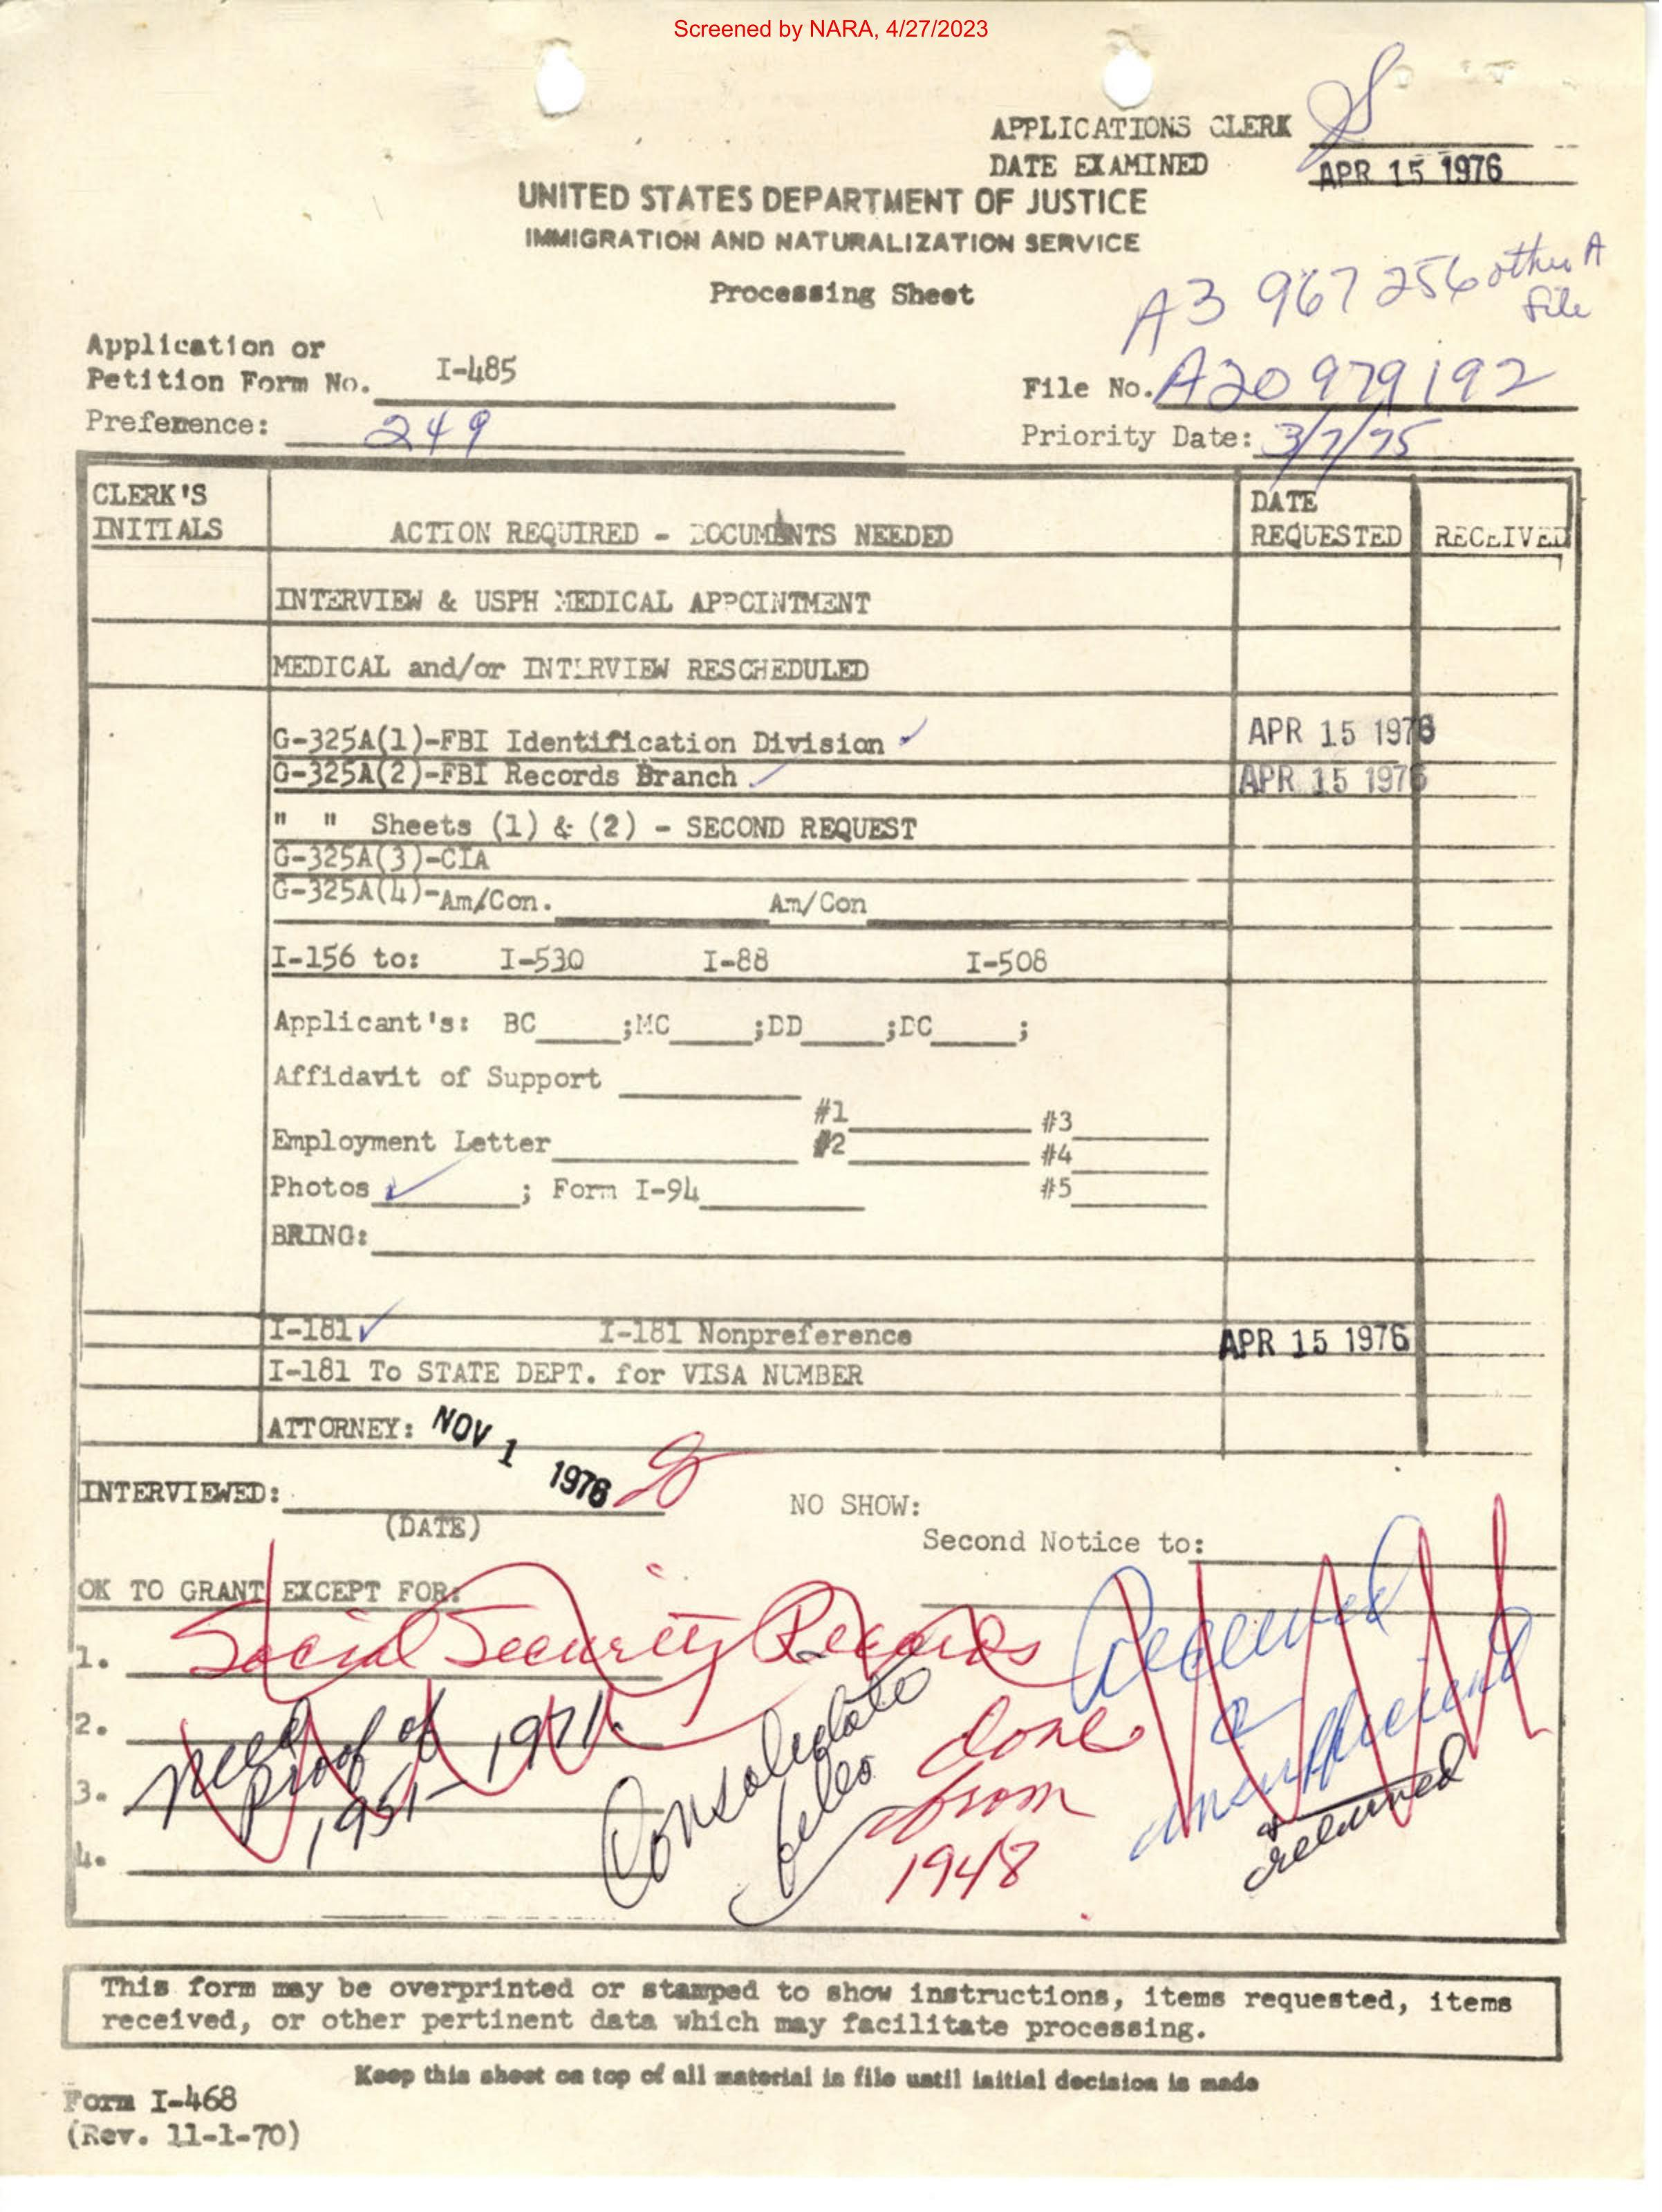 Screened by NARA, 4/27/2023
APPLICATIONS CLERK
DATE EXAMINED APR 15 1976
UNITED STATES DEPARTMENT OF JUSTICE
IMMIGRATION AND NATURALIZATION SERVICE
Processing Sheet
A3 967 256 other A
file
Application or
Petition Form No. I-485
File No. A20 979 192
Preference: 249
Priority Date: 3/7/75
CLERK'S
INITIALS
ACTION REQUIRED - DOCUMENTS NEEDED
DATE
REQUESTED
RECEIVED
INTERVIEW & USPH MEDICAL APPOINTMENT
MEDICAL and/or INTERVIEW RESCHEDULED
G-325A(1)-FBI Identification Division ✓ APR 15 1976
G-325A(2)-FBI Records Branch ✓ APR 15 1976
" " Sheets (1) & (2) - SECOND REQUEST
G-325A(3)-CIA
G-325A(4)-Am/Con. Am/Con
I-156 to: I-530 I-88 I-508
Applicant's: BC ;MC ;DD ;DC ;
Affidavit of Support
#1 #3
Employment Letter #2 #4
Photos ✓ ; Form I-94 #5
BRING:
I-181 ✓ I-181 Nonpreference APR 15 1976
I-181 To STATE DEPT. for VISA NUMBER
ATTORNEY:
NOV 1 1976
INTERVIEWED:
(DATE)
NO SHOW:
Second Notice to:
OK TO GRANT EXCEPT FOR:
1. Social Security Records
2.
3.
4.
need
proof of
1951-1971.
Consolidate
files
done
from
1948
Received
&
insufficient
& returned
This form may be overprinted or stamped to show instructions, items requested, items
received, or other pertinent data which may facilitate processing.
Keep this sheet on top of all material in file until initial decision is made
Form I-468
(Rev. 11-1-70)